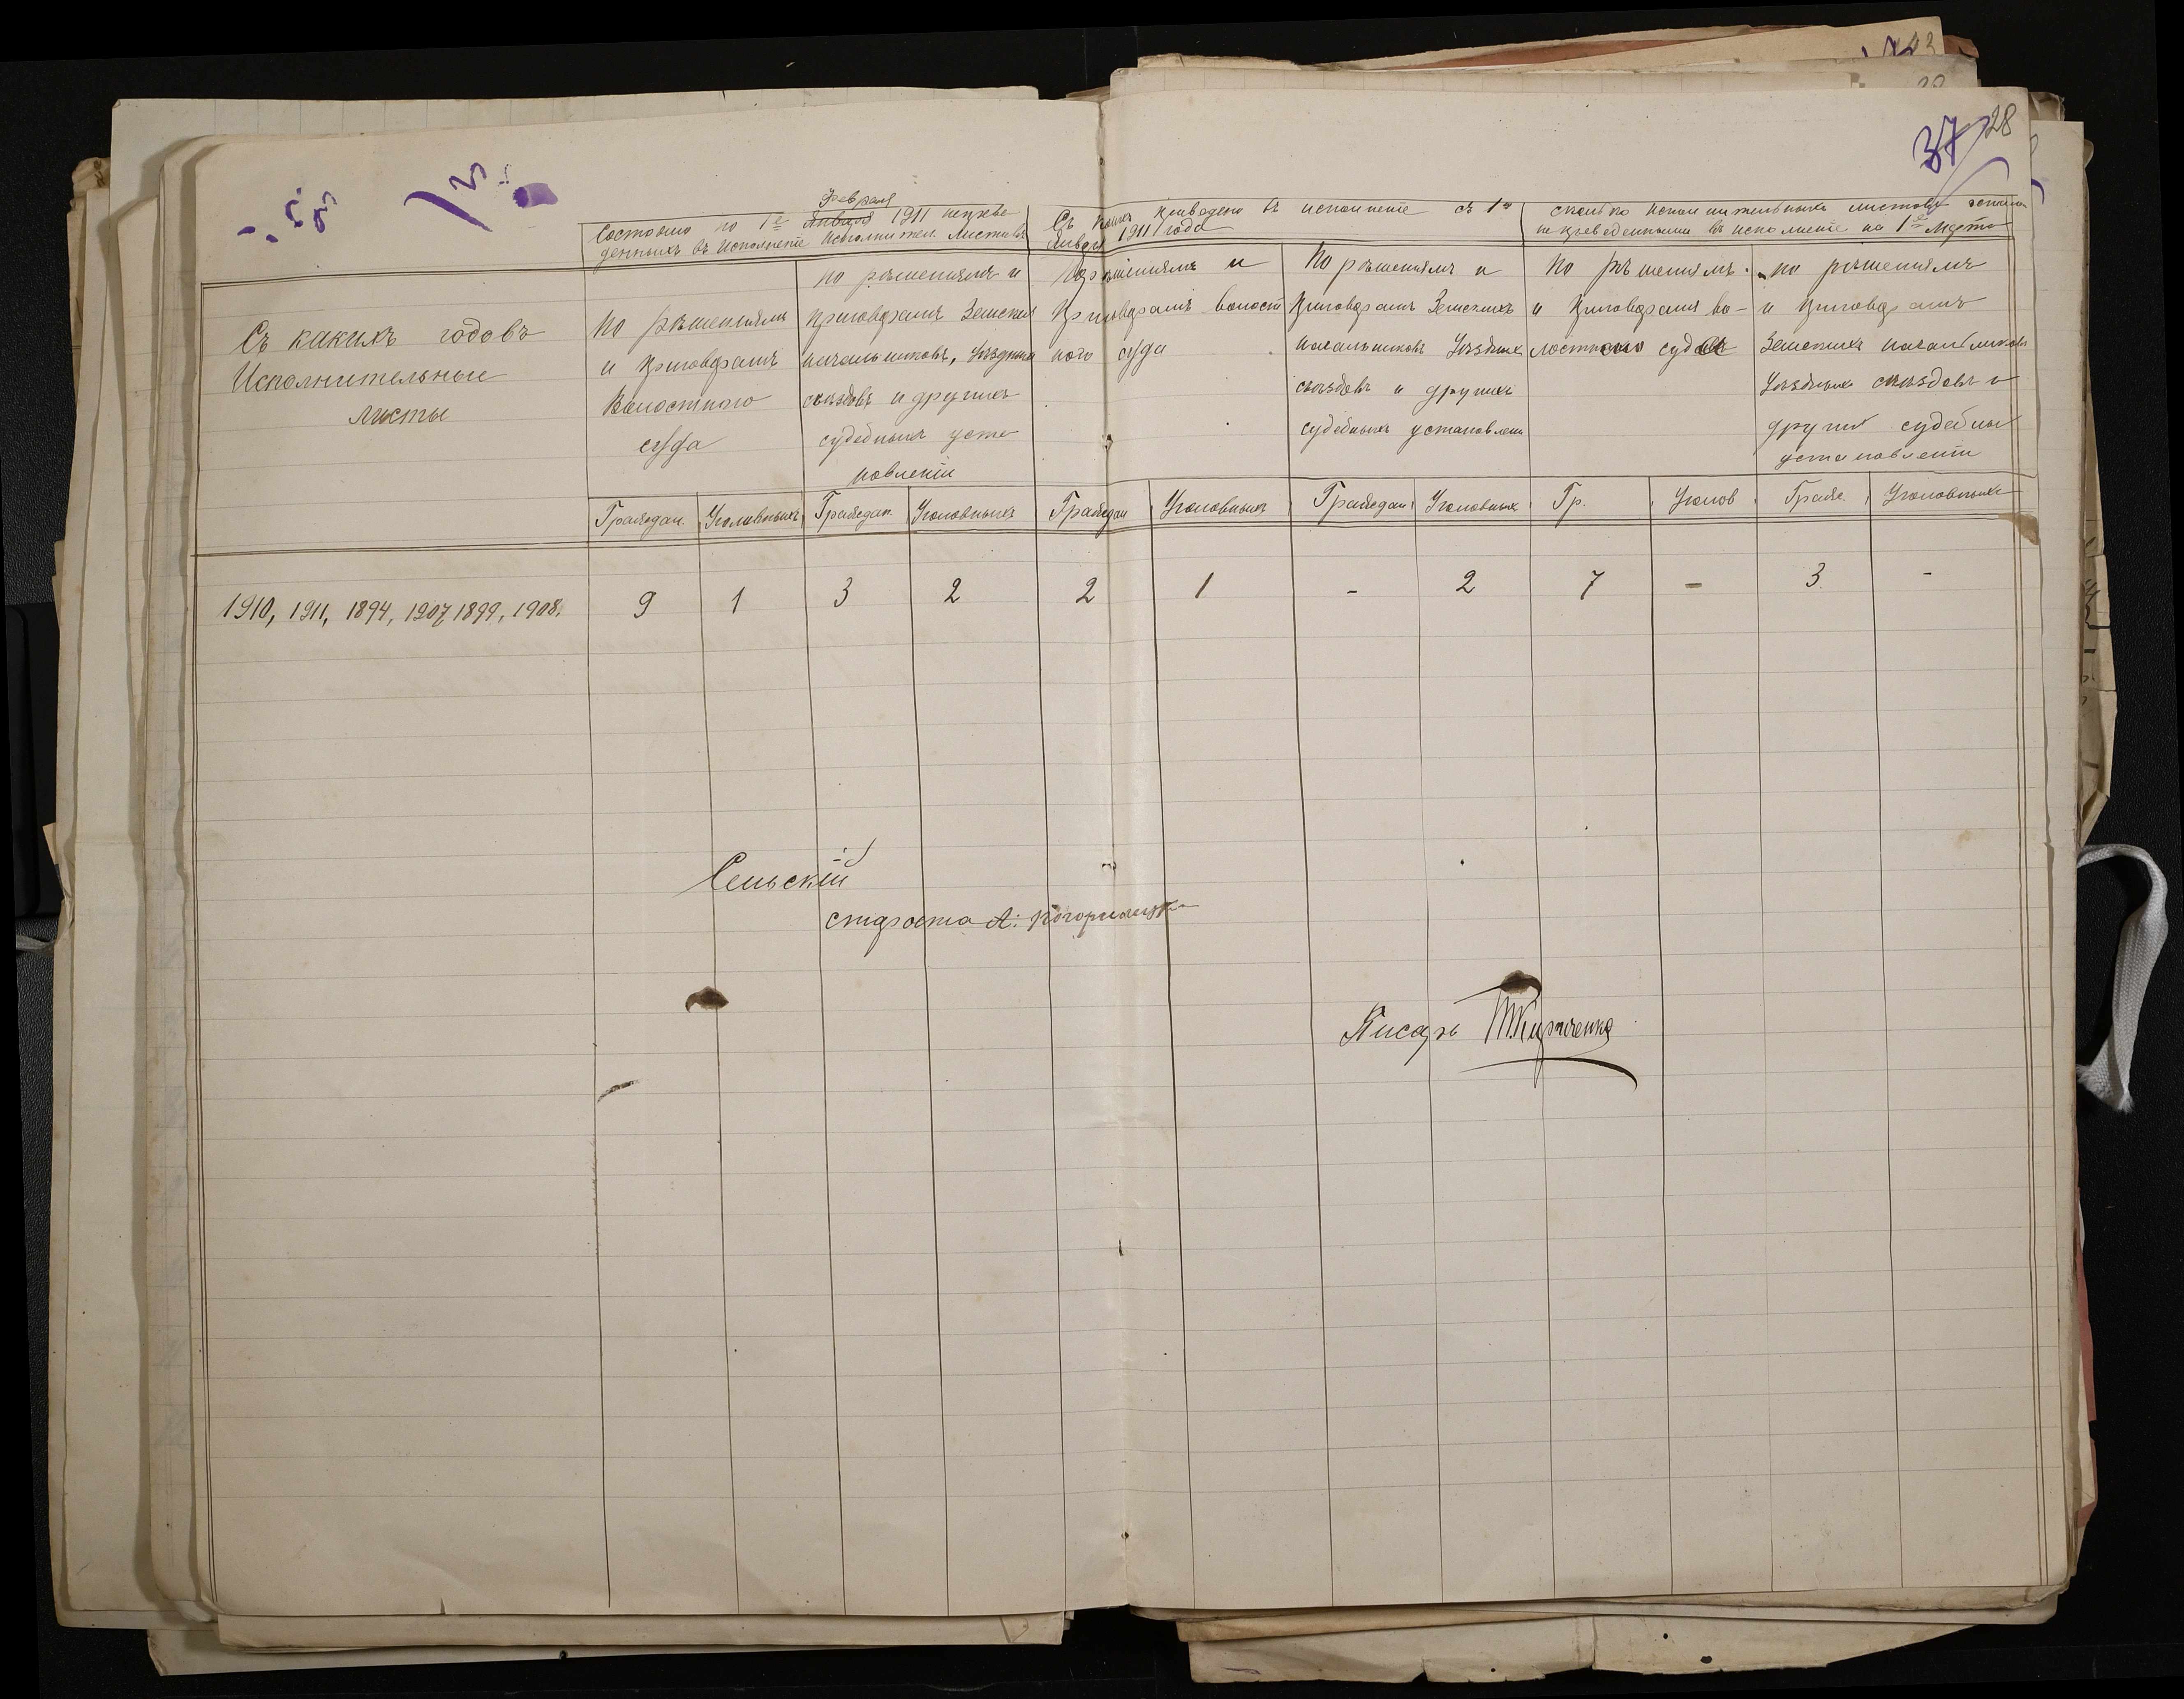 37 28
Съ какихъ годовъ
Исполнительные
листы
Февраля
Состояло по 1е Января 1911 неприве
денныхъ въ исполненіе исполнител. листовъ
По рѣшеніямъ
и приговорамъ
Волостного
суда
по рѣшеніямъ и
приговорамъ Земских
начальниковъ, Уѣздныхъ
съѣздовъ и другихъ
судебныхъ уста
новленій
Съ коихъ приведено въ исполненіе съ 1го
Января 1911 года
По рѣшеніямъ и
приговорамъ волост
ного суда
По рѣшеніямъ и
приговорамъ Земскихъ
начальниковъ Уѣздных
съѣздовъ и другихъ
судебныхъ установлен
сколько исполнительныхъ листовъ
не приведенными въ исполненіе на 1е Марта
По рѣшеніямъ
и приговорамъ во-
лостного суда
по рѣшеніямъ
и приговорамъ
Земскихъ начальников
Уѣздныхъ съѣздовъ и
других судебных
установленій
Граждан. Уголовныхъ Граждан. Уголовныхъ Граждан Уголовныхъ Граждан Уголовных Гр. Уголов Гражд. Уголовныхъ
1910, 1911, 1894, 1907, 1899, 1908. 9 1 3 2 2 1 - 2 7 - 3 -
Сельскій
староста А.
Писарь